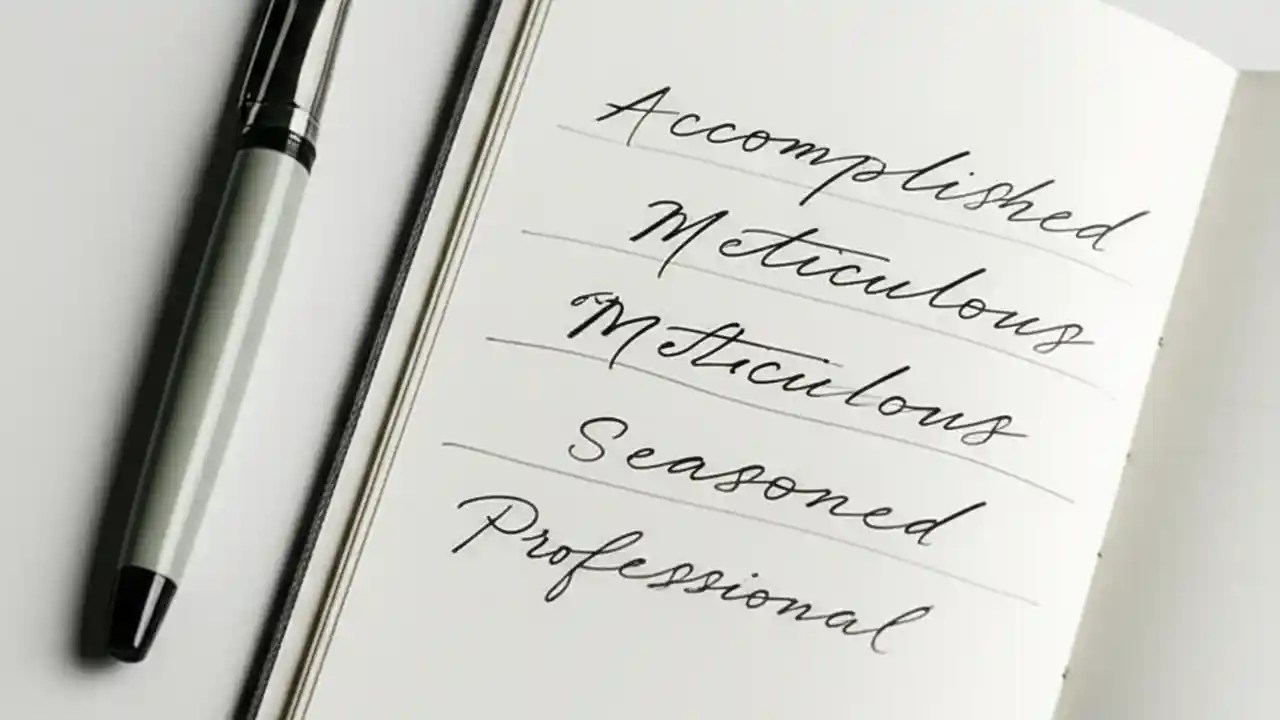 Accomplished
Meticulous
Meticulous
Seasoned
Professional